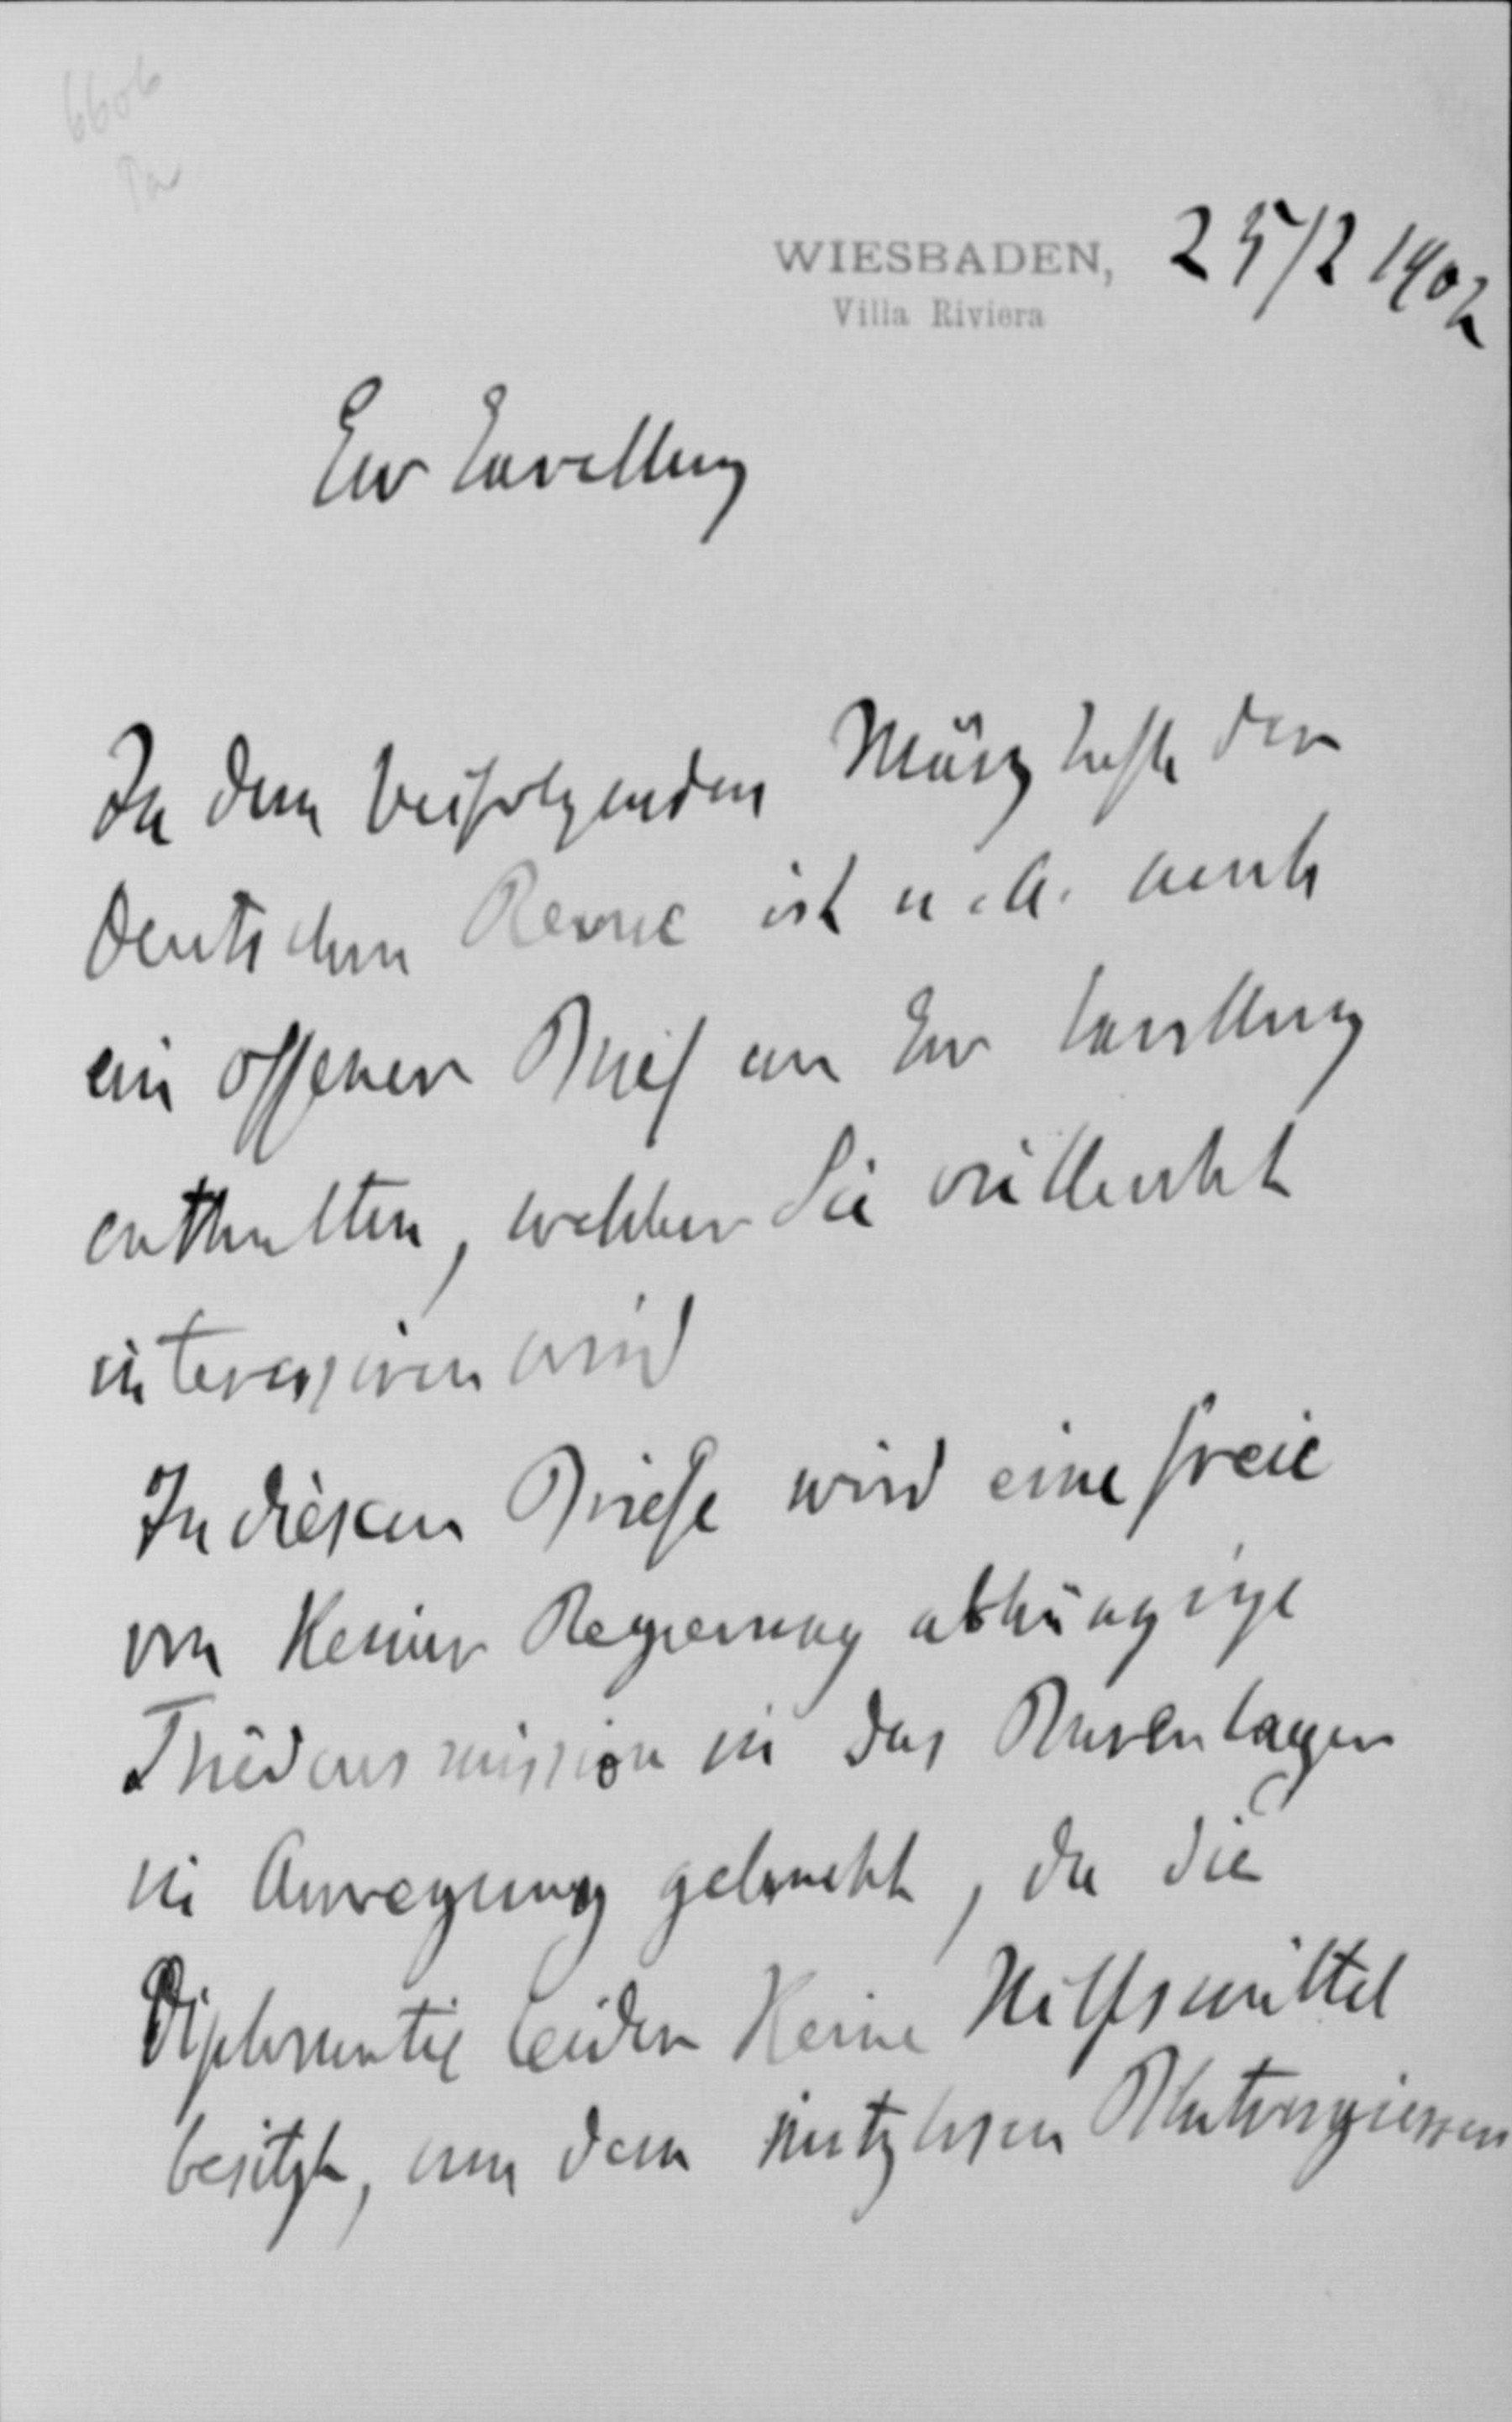 6606
WIESBADEN, 25/2 1902
Villa Riviera
Ew Excellenz
In dem beifolgenden Märzhefte der
Deutschen Revue ist u. A. auch
ein offener Brief an Ew Excellenz
enthalten, welcher Sie vielleicht
interessiren wird
In diesem Briefe wird eine freie
von keiner Regierung abhängige
Friedensmission in das Burenlager
in Anregung gebracht, da die
Diplomatie leider keine Hilfsmittel
besitzt, um dem nutzlosen Blutvergiessen